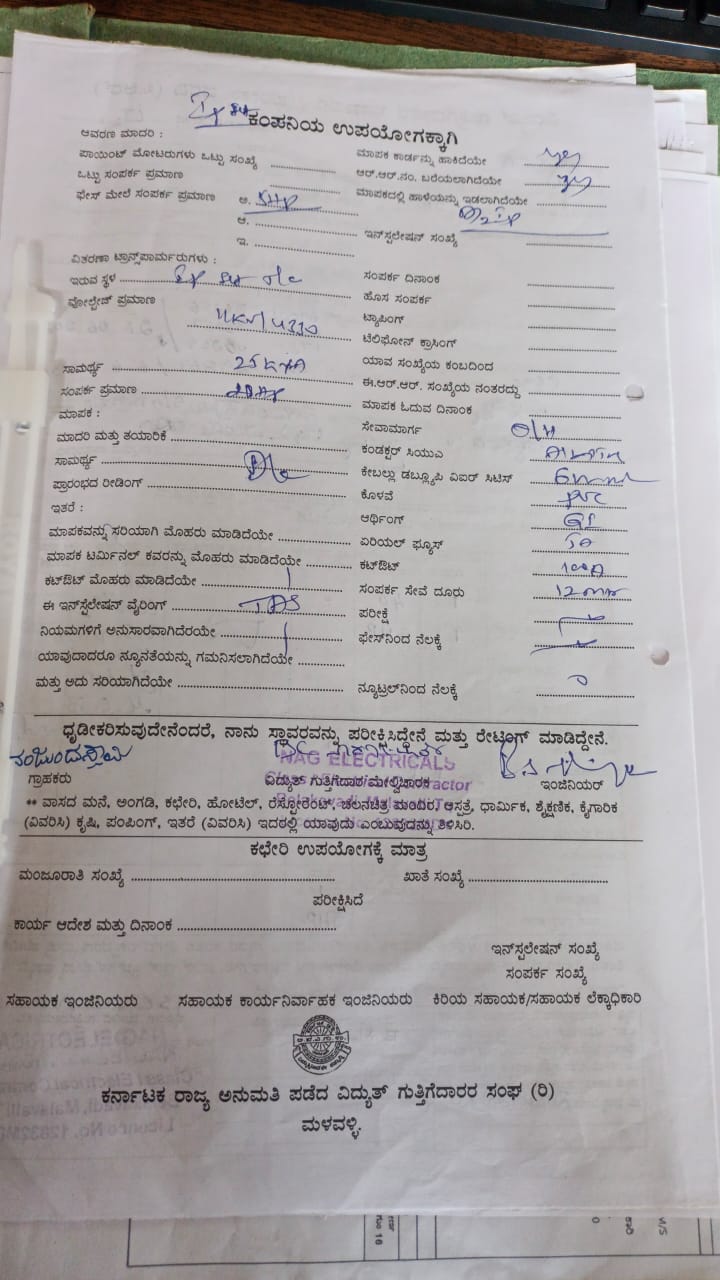 ಕಂಪನಿಯ ಉಪಯೋಗಕ್ಕಾಗಿ
ಆವರಣ ಮಾದರಿ :
ಪಾಯಿಂಟ್ ಮೋಟರುಗಳು ಒಟ್ಟು ಸಂಖ್ಯೆ
ಮಾಪಕ ಕಾರ್ಡನ್ನು ಹಾಕಿದೆಯೇ yes
ಒಟ್ಟು ಸಂಪರ್ಕ ಪ್ರಮಾಣ
ಆರ್.ಆರ್.ನಂ. ಬರೆಯಲಾಗಿದೆಯೇ yes
ಫೇಸ್ ಮೇಲೆ ಸಂಪರ್ಕ ಪ್ರಮಾಣ ಅ. 5HP
ಮಾಪಕದಲ್ಲಿ ಹಾಳೆಯನ್ನು ಇಡಲಾಗಿದೆಯೇ
ಆ.
ಇ.
ಇನ್‌ಸ್ಟಲೇಷನ್ ಸಂಖ್ಯೆ
ವಿತರಣಾ ಟ್ರಾನ್ಸ್‌ಫಾರ್ಮರುಗಳು :
ಇರುವ ಸ್ಥಳ
ಸಂಪರ್ಕ ದಿನಾಂಕ
ವೋಲ್ಟೇಜ್ ಪ್ರಮಾಣ
ಹೊಸ ಸಂಪರ್ಕ
ಟ್ಯಾಪಿಂಗ್
ಟೆಲಿಫೋನ್ ಕ್ರಾಸಿಂಗ್
ಸಾಮರ್ಥ್ಯ 25 KVA
ಯಾವ ಸಂಖ್ಯೆಯ ಕಂಬದಿಂದ
ಸಂಪರ್ಕ ಪ್ರಮಾಣ
ಈ.ಆರ್.ಆರ್. ಸಂಖ್ಯೆಯ ನಂತರದ್ದು
ಮಾಪಕ :
ಮಾಪಕ ಓದುವ ದಿನಾಂಕ
ಮಾದರಿ ಮತ್ತು ತಯಾರಿಕೆ
ಸೇವಾಮಾರ್ಗ O/H
ಸಾಮರ್ಥ್ಯ
ಕಂಡಕ್ಟರ್ ಸಿಯುಎ
ಪ್ರಾರಂಭದ ರೀಡಿಂಗ್
ಕೇಬಲ್ಲು ಡಬ್ಲ್ಯೂಪಿ ವಿಐಆರ್ ಸಿಟಿಸ್ 6mm
ಇತರೆ :
ಕೊಳವೆ pvc
ಮಾಪಕವನ್ನು ಸರಿಯಾಗಿ ಮೊಹರು ಮಾಡಿದೆಯೇ
ಆರ್ಥಿಂಗ್ GI
ಮಾಪಕ ಟರ್ಮಿನಲ್ ಕವರನ್ನು ಮೊಹರು ಮಾಡಿದೆಯೇ
ಏರಿಯಲ್ ಫ್ಯೂಸ್ 5A
ಕಟ್‌ಔಟ್ ಮೊಹರು ಮಾಡಿದೆಯೇ
ಕಟ್‌ಔಟ್ 100A
ಈ ಇನ್‌ಸ್ಟಲೇಷನ್ ವೈರಿಂಗ್
ಸಂಪರ್ಕ ಸೇವೆ ದೂರು
ಪರೀಕ್ಷೆ
ನಿಯಮಗಳಿಗೆ ಅನುಸಾರವಾಗಿದೆರಯೇ
ಫೇಸ್‌ನಿಂದ ನೆಲಕ್ಕೆ
ಯಾವುದಾದರೂ ನ್ಯೂನತೆಯನ್ನು ಗಮನಿಸಲಾಗಿದೆಯೇ
ಮತ್ತು ಅದು ಸರಿಯಾಗಿದೆಯೇ
ನ್ಯೂಟ್ರಲ್‌ನಿಂದ ನೆಲಕ್ಕೆ
ಧೃಡೀಕರಿಸುವುದೇನೆಂದರೆ, ನಾನು ಸ್ಥಾವರವನ್ನು ಪರೀಕ್ಷಿಸಿದ್ದೇನೆ ಮತ್ತು ರೇಟಿಂಗ್ ಮಾಡಿದ್ದೇನೆ.
ನಂಜುಂದಸ್ವಾಮಿ
NAG ELECTRICALS
ಗ್ರಾಹಕರು
ವಿದ್ಯುತ್ ಗುತ್ತಿಗೆದಾರ/ಮೇಲ್ವಿಚಾರಕ
ಇಂಜಿನಿಯರ್
** ವಾಸದ ಮನೆ, ಅಂಗಡಿ, ಕಛೇರಿ, ಹೋಟೆಲ್, ರೆಸ್ಟೋರೆಂಟ್, ಚಲನಚಿತ್ರ ಮಂದಿರ, ಆಸ್ಪತ್ರೆ, ಧಾರ್ಮಿಕ, ಶೈಕ್ಷಣಿಕ, ಕೈಗಾರಿಕ
(ವಿವರಿಸಿ) ಕೃಷಿ, ಪಂಪಿಂಗ್, ಇತರೆ (ವಿವರಿಸಿ) ಇದರಲ್ಲಿ ಯಾವುದು ಎಂಬುವುದನ್ನು ತಿಳಿಸಿರಿ.
ಕಛೇರಿ ಉಪಯೋಗಕ್ಕೆ ಮಾತ್ರ
ಮಂಜೂರಾತಿ ಸಂಖ್ಯೆ
ಖಾತೆ ಸಂಖ್ಯೆ
ಪರೀಕ್ಷಿಸಿದೆ
ಕಾರ್ಯ ಆದೇಶ ಮತ್ತು ದಿನಾಂಕ
ಇನ್‌ಸ್ಟಲೇಷನ್ ಸಂಖ್ಯೆ
ಸಂಪರ್ಕ ಸಂಖ್ಯೆ
ಸಹಾಯಕ ಇಂಜಿನಿಯರು ಸಹಾಯಕ ಕಾರ್ಯನಿರ್ವಾಹಕ ಇಂಜಿನಿಯರು ಕಿರಿಯ ಸಹಾಯಕ/ಸಹಾಯಕ ಲೆಕ್ಕಾಧಿಕಾರಿ
ಕರ್ನಾಟಕ ರಾಜ್ಯ ಅನುಮತಿ ಪಡೆದ ವಿದ್ಯುತ್ ಗುತ್ತಿಗೆದಾರರ ಸಂಘ (ರಿ)
ಮಳವಳ್ಳಿ.